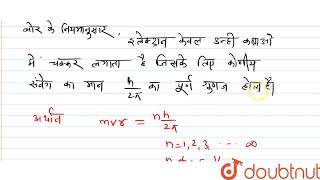 बोर के नियमानुसार, इलेक्ट्रान केवल उन्ही कक्षाओ
में चक्कर लगाता है जिसके लिए कोणीय
संवेग का मान h/2π का पूर्ण गुणज होता है।
अर्थात mvr = nh/2π
n=1,2,3, ... ∞
doubtnut